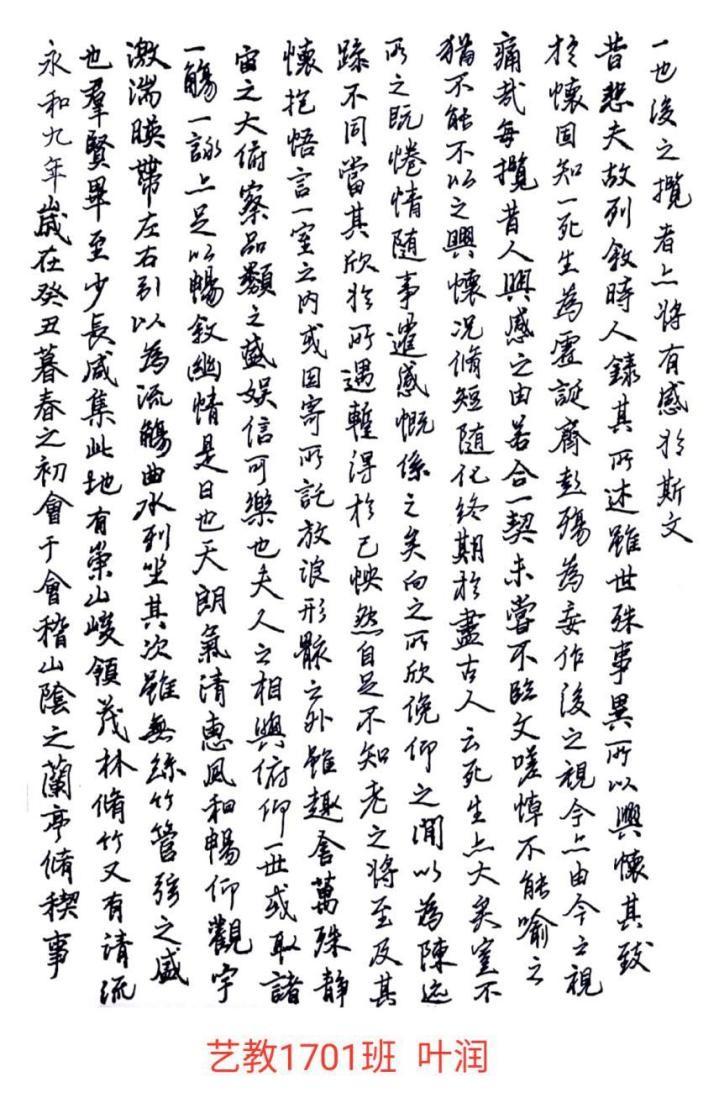 永和九年歲在癸丑暮春之初會于會稽山陰之蘭亭脩稧事
也羣賢畢至少長咸集此地有崇山峻領茂林脩竹又有清流
激湍暎帶左右引以為流觴曲水列坐其次雖無絲竹管弦之盛
一觴一詠亦足以暢敘幽情是日也天朗氣清惠風和暢仰觀宇
宙之大俯察品類之盛娛信可樂也夫人之相與俯仰一世或取諸
懷抱悟言一室之內或因寄所託放浪形骸之外雖趣舍萬殊静
躁不同當其欣於所遇暫得於己怏然自足不知老之將至及其
所之既惓情随事遷感慨係之矣向之所欣俛仰之閒以為陳迹
猶不能不以之興懷況脩短随化終期於盡古人云死生亦大矣豈不
痛哉每攬昔人興感之由若合一契未嘗不臨文嗟悼不能喻之
於懷固知一死生為虛誕齊彭殤為妄作後之視今亦由今之視
昔悲夫故列敘時人錄其所述雖世殊事異所以興懷其致
一也後之攬者亦將有感於斯文
艺教1701班 叶润